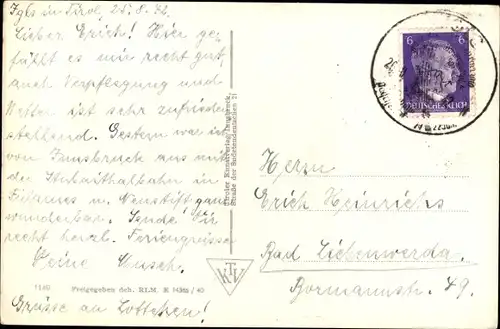 Igls in Tirol, 25.8.42.
Lieber Erich! Hier ge-
fällt es mir recht gut,
auch Verpflegung und
Wetter ist sehr zufrieden-
stellend. Gestern war ich
von Innsbruck aus mit
der Stubaitalbahn in
Fulpmes u. Neustift ganz
wunderbar. Sende Dir
recht herzl. Feriengrüsse
Deine Musch.
Grüsse an Lottchen!
1190 Freigegeben dch. RLM.
Tiroler Kunstverlag, Innsbruck,
Straße der Sudetendeutschen 21
TKV
6
DEUTSCHES REICH
Herrn
Erich Heinrichs
Bad Liebenwerda.
Bormannstr. 49.